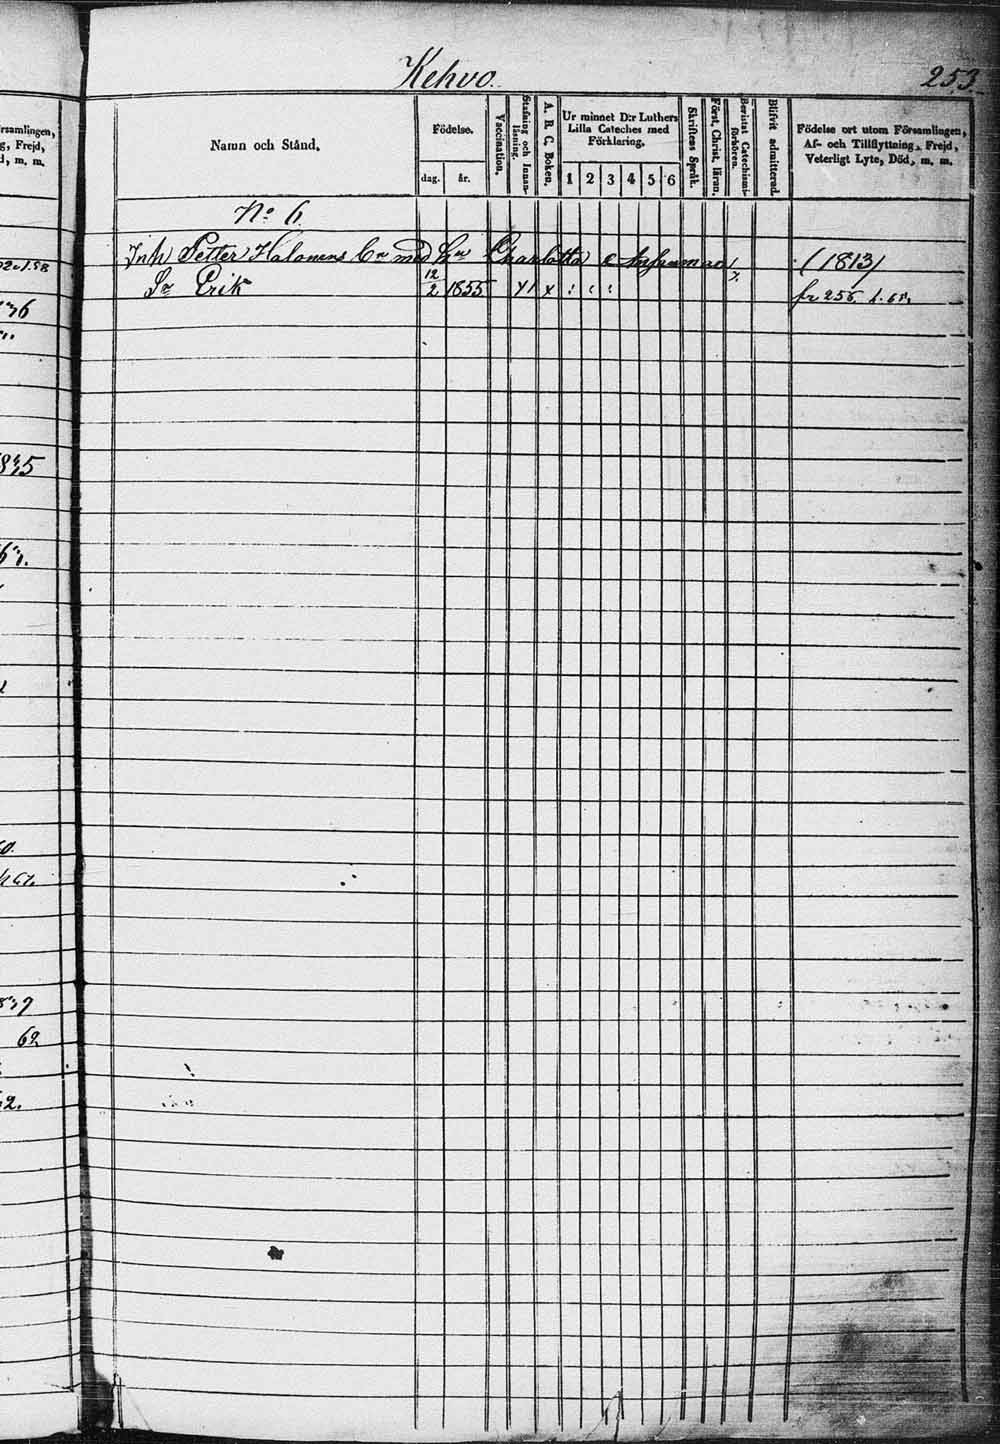 Kehvo.
253.
rsamlingen,
g, Frejd,
d, m. m.
Namn och Stånd.
Födelse.
dag.
år.
Vaccination.
Stafning och Innan-
läsning.
A. B. C. Boken.
Ur minnet D:r Luthers
Lilla Cateches med
Förklaring,
1 2 3 4 5 6
Skriftens Språk.
Först. Christ. läran.
Bevistat Catechismi-
förhören.
Blifvit admitterad.
Födelse ort utom Församlingen,
Af- och Tillflyttning, Frejd,
Veterligt Lyte, Död, m. m.
No 6.
Inh Petter Halonens med Charlotta (1813)
Sr Erik 12/2 1855 fr 255
1835
69.
62.